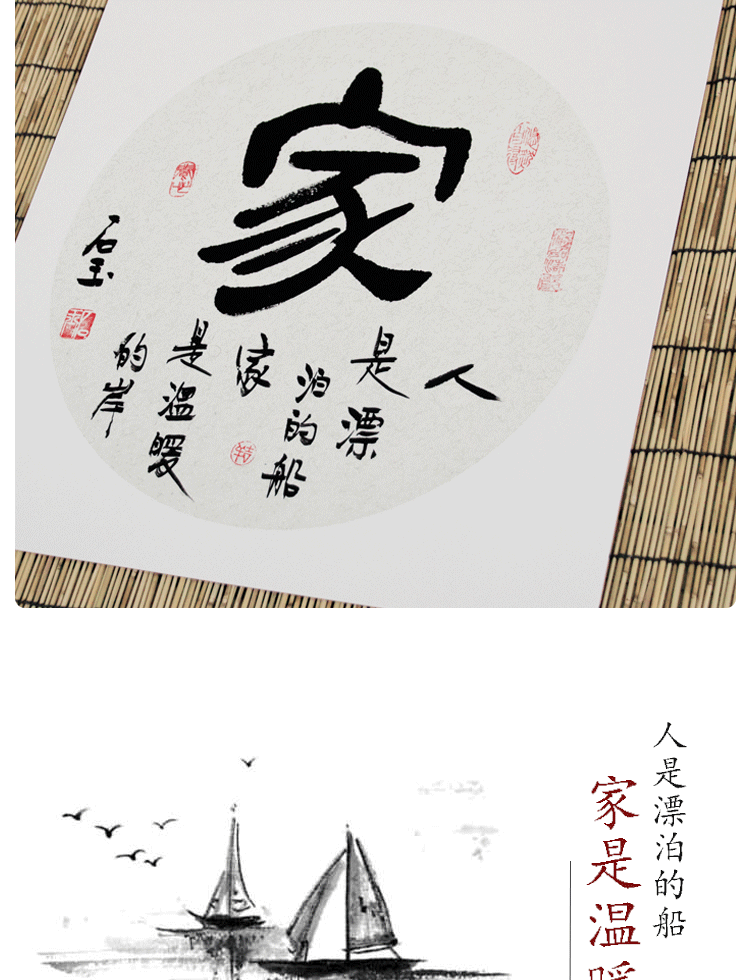 家
人
是漂
泊的船
家
是温暖
的岸
石玉
人是漂泊的船
家是温暖